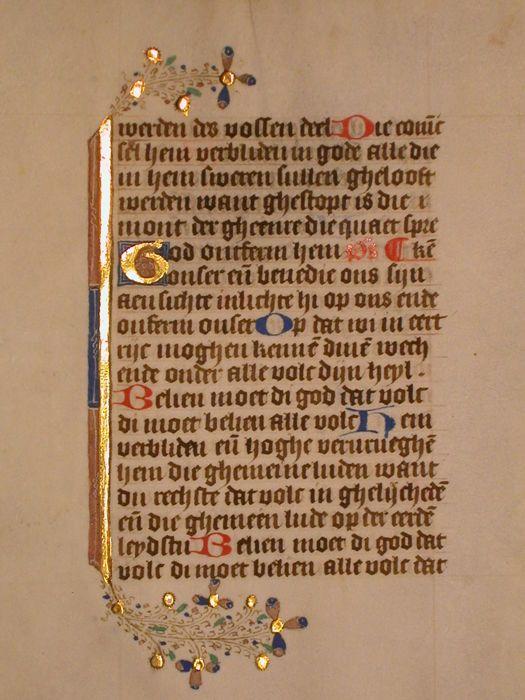 werden des vossen deel Die coninc
sel hem verbliden in gode alle die
in hem sweren sullen ghelooft
werden want ghestopt is die
mont der gheenre die quaet spre
God ontferm hem ps kē
onser eñ benedie ons sijn
aensichte inlichte hi op ons ende
onferm onser Op dat wi in eert
rijc moghen kennē dinē wech
ende onder alle volc dijn heyl.
Belien moet di god dat volc
di moet belien alle volc Hem
verbliden eñ hoghe vervrueghē
hem die ghemeine luiden want
du rechste dat volc in ghelijchedē
eñ die ghemeen lude op der eerdē
leydstu Belien moet di god dat
volc di moet belien alle volc dat